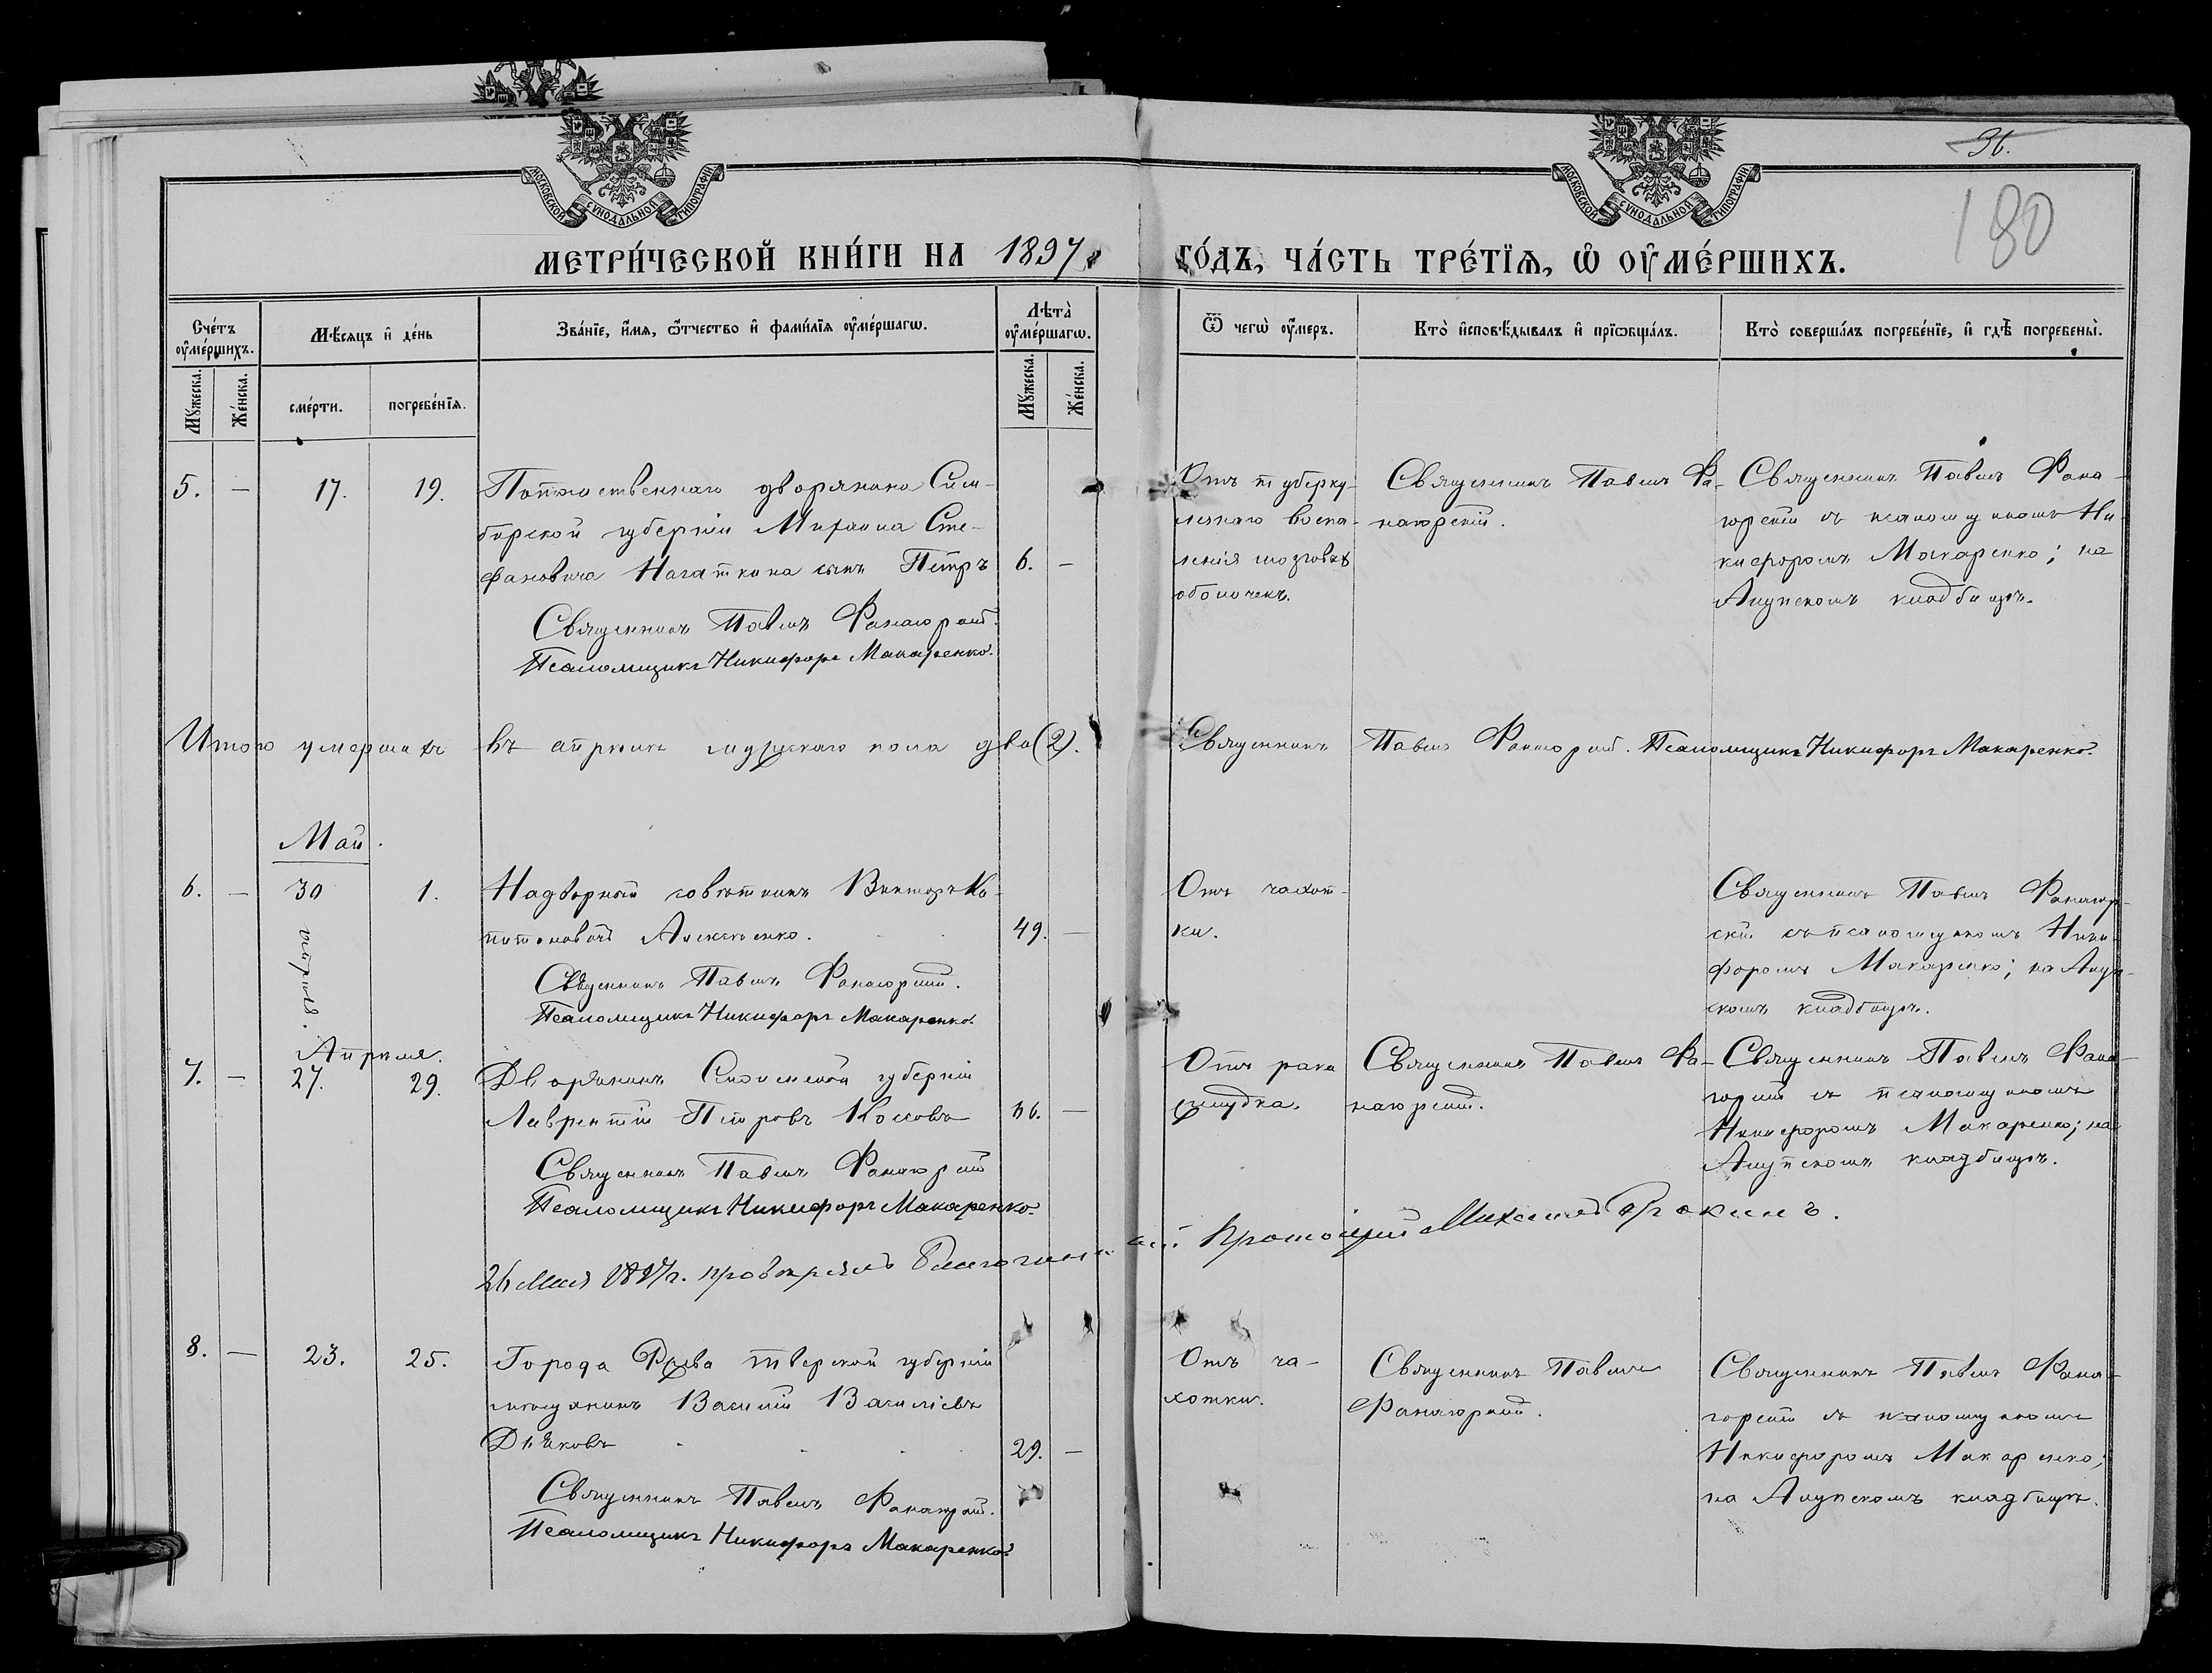 36.
180
МОСКОВСКОЙ СѴНОДАЛЬНОЙ ТИПОГРАФІИ
МОСКОВСКОЙ СѴНОДАЛЬНОЙ ТИПОГРАФІИ
МЕТРИ́ЧЕСКОЙ КНИ́ГИ НА 1897 ГО́ДЪ, ЧА́СТЬ ТРЕ́ТЇѦ, Ѡ ОУМЕ́РШИХЪ.
Сче́тъ оуме́ршихъ.
Мѣ́сяцъ и де́нь
Зва́нїе, и́мя, ѻ҆́тчество и фами́лїя оуме́ршагѡ.
Лѣта̀ оуме́ршагѡ.
Ѿ чегѡ̀ оу́меръ.
Кто̀ исповѣ́дывалъ и прїѡбща́лъ.
Кто̀ соверша́лъ погребе́нїе, и гдѣ̀ погребены̀.
Мꙋ́жеска.
Же́нска.
сме́рти.
погребе́нїѧ.
Мꙋ́жеска.
Же́нска.
5. — 17. 19.
Потомственнаго дворянина Сим-
бирской губерніи Михаила Сте-
фановича Нагаткина сынъ Петръ 6. —
Священникъ Павелъ Фанагорскій.
Псаломщикъ Никифоръ Макаренко.
Отъ туберку-
лезнаго воспа-
ленія мозговых
оболочекъ.
Священникъ Павелъ Фа-
нагорскій.
Священникъ Павелъ Фана-
горскій съ псаломщикомъ Ни-
кифоромъ Макаренко; на
Алупскомъ кладбищѣ.
Итого умершихъ въ апрѣлѣ мужескаго пола два (2). Священникъ Павелъ Фанагорскій. Псаломщикъ Никифоръ Макаренко.
Май.
6. — 30 1.
апрѣля.
Надворный совѣтникъ Викторъ Ка-
питоновичъ Алексенко. 49. —
Священникъ Павелъ Фанагорскій.
Псаломщикъ Никифоръ Макаренко.
Отъ чахот-
ки.
Священникъ Павелъ Фанагор-
скій съ псаломщикомъ Ники-
форомъ Макаренко; на Алуп-
скомъ кладбищѣ.
Апрѣля.
7. — 27. 29.
Дворянинъ Смоленской губерніи
Лаврентій Петровъ Коссовъ 66. —
Священникъ Павелъ Фанагорскій
Псаломщикъ Никифоръ Макаренко.
Отъ рака
желудка.
Священникъ Павелъ Фа-
нагорскій.
Священникъ Павелъ Фана-
горскій съ псаломщикомъ
Никифоромъ Макаренко; на
Алупскомъ кладбищѣ.
26 Мая 1897 г. провѣрялъ Благочинный Протоіерей Михаилъ
8. — 23. 25.
Города Ржева Тверской губерніи
мѣщанинъ Василій Васильевъ
Дьяковъ 29. —
Священникъ Павелъ Фанагорскій.
Псаломщикъ Никифоръ Макаренко.
Отъ ча-
хотки.
Священникъ Павелъ
Фанагорскій.
Священникъ Павелъ Фана-
горскій съ псаломщикомъ
Никифоромъ Макаренко;
на Алупскомъ кладбищѣ.